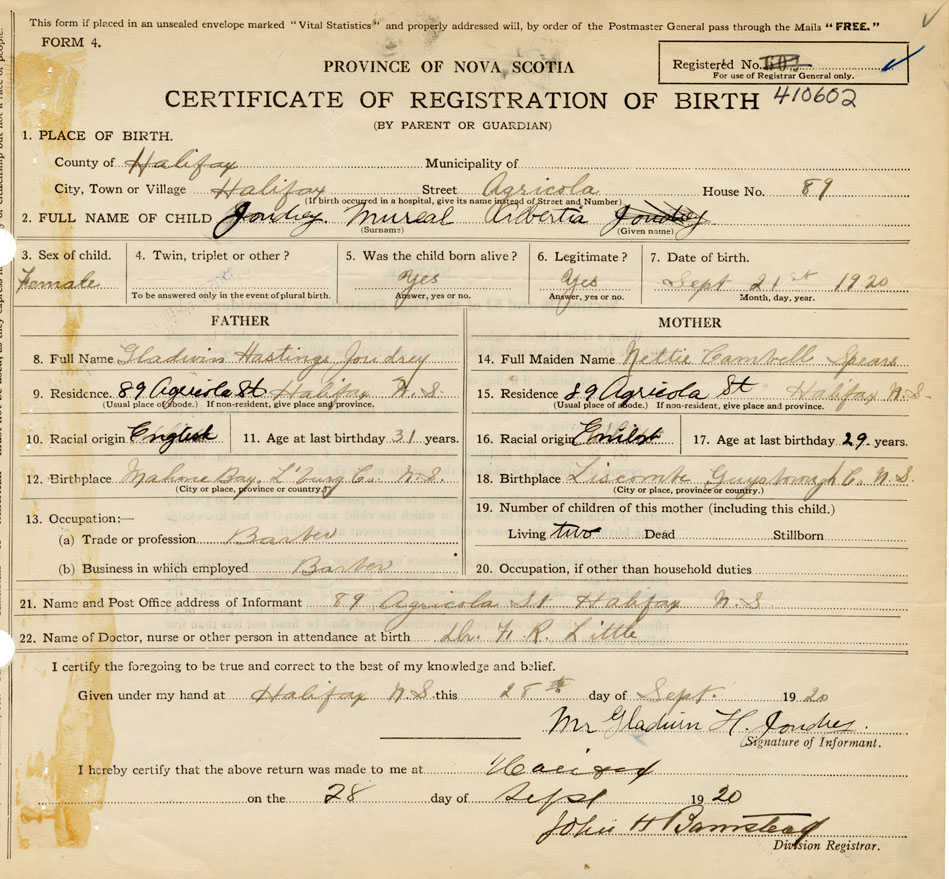 This form if placed in an unsealed envelope marked "Vital Statistics" and properly addressed will, by order of the Postmaster General pass through the Mails "FREE."
FORM 4.
Registered No. 603
For use of Registrar General only.
410602
PROVINCE OF NOVA SCOTIA
CERTIFICATE OF REGISTRATION OF BIRTH
(BY PARENT OR GUARDIAN)
1. PLACE OF BIRTH.
County of Halifax Municipality of
City, Town or Village Halifax Street Agricola House No. 89
(If birth occurred in a hospital, give its name instead of Street and Number)
2. FULL NAME OF CHILD Joudrey. Mureal Albertia Joudrey
(Surname) (Given name)
3. Sex of child. 4. Twin, triplet or other? 5. Was the child born alive? 6. Legitimate? 7. Date of birth.
Female Yes Yes Sept 21st 1920
To be answered only in the event of plural birth. Answer, yes or no. Answer, yes or no. Month, day, year.
FATHER MOTHER
8. Full Name Gladwin Hastings Joudrey 14. Full Maiden Name Nettie Cambell Spears
9. Residence. 89 Agricola St Halifax N.S. 15. Residence 89 Agricola St Halifax N.S.
(Usual place of abode.) If non-resident, give place and province. (Usual place of abode.) If non-resident, give place and province.
10. Racial origin English 11. Age at last birthday 31 years. 16. Racial origin 17. Age at last birthday 29 years.
12. Birthplace Mahone Bay, L'burg Co. N.S. 18. Birthplace Liscombe Guysborough Co. N.S.
(City or place, province or country.) (City or place, province or country.)
13. Occupation:— 19. Number of children of this mother (including this child.)
(a) Trade or profession Barber Living two Dead Stillborn
(b) Business in which employed Barber 20. Occupation, if other than household duties
21. Name and Post Office address of Informant 89 Agricola St Halifax N.S.
22. Name of Doctor, nurse or other person in attendance at birth Dr. F. R. Little
I certify the foregoing to be true and correct to the best of my knowledge and belief.
Given under my hand at Halifax N.S. this 28th day of Sept. 1920
Mr Gladwin H. Joudrey.
Signature of Informant.
I hereby certify that the above return was made to me at Halifax
on the 28 day of Sept 1920
John H Barnstead
Division Registrar.